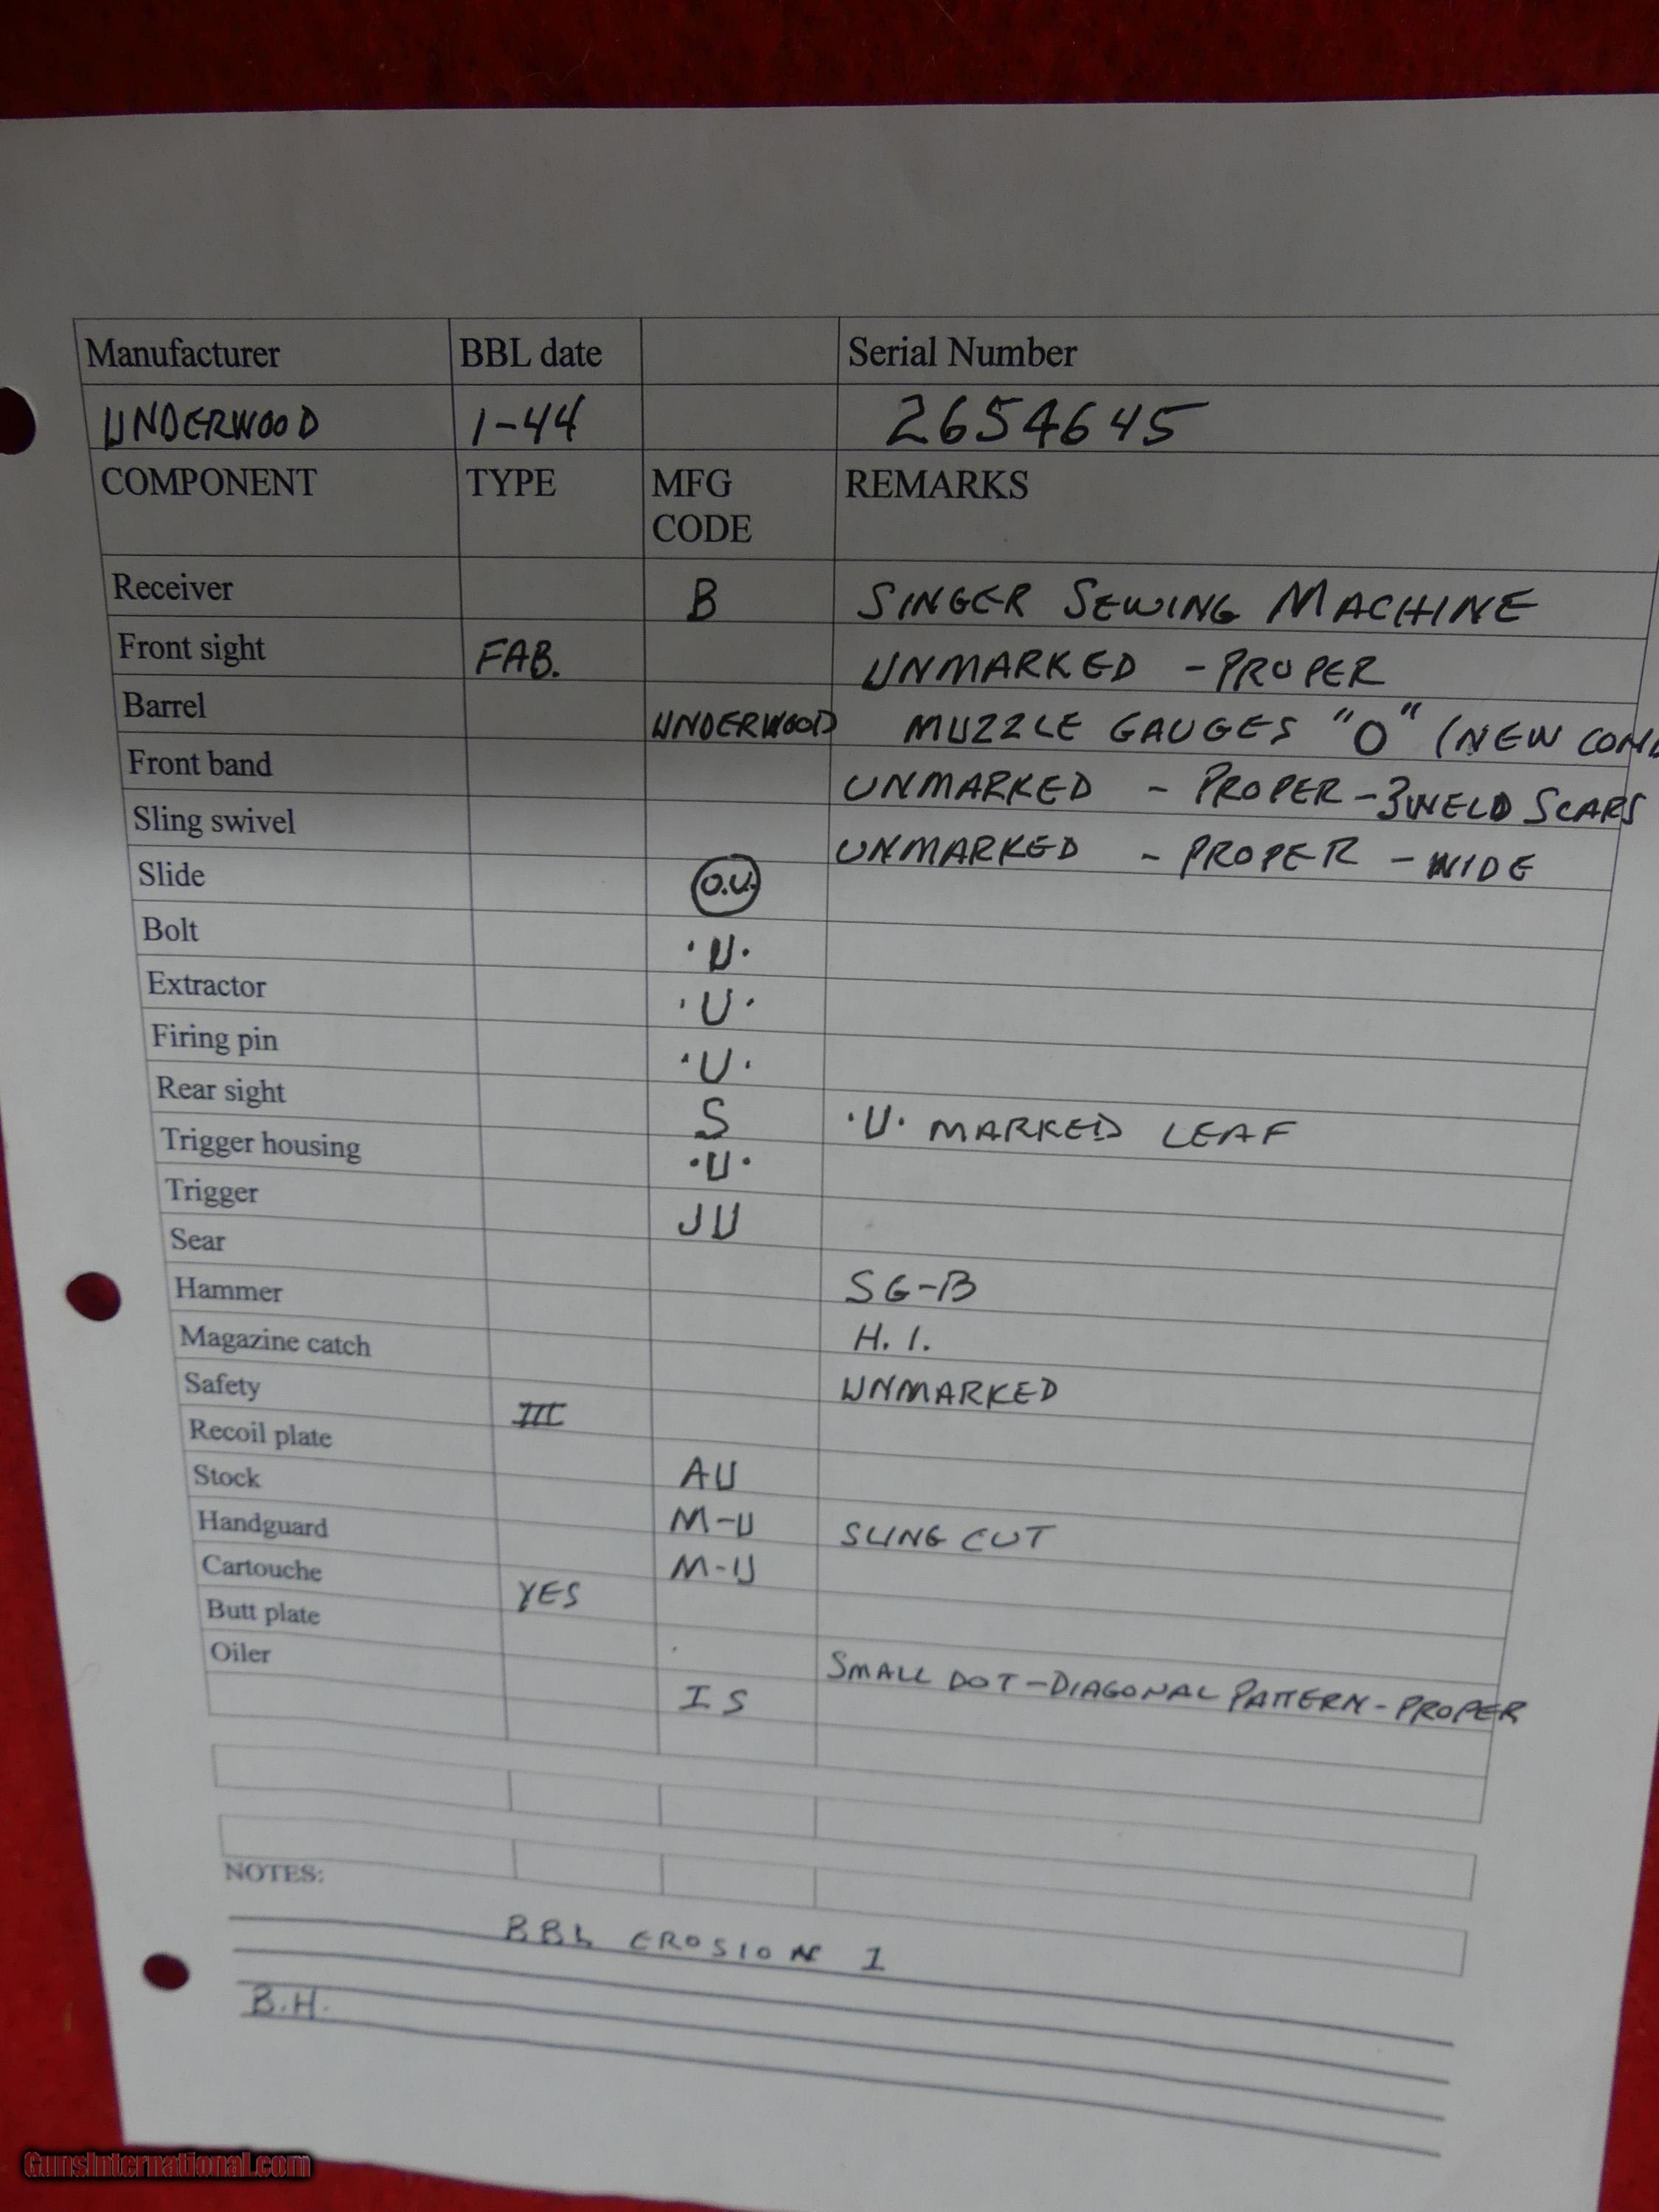 Manufacturer BBL date Serial Number
UNDERWOOD 1-44 2654645
COMPONENT TYPE MFG CODE REMARKS
Receiver B SINGER SEWING MACHINE
Front sight FAB. UNMARKED - PROPER
Barrel UNDERWOOD MUZZLE GAUGES "0" (NEW COND
Front band UNMARKED - PROPER - 3 WELD SCARS
Sling swivel UNMARKED - PROPER - WIDE
Slide O.U.
Bolt .U.
Extractor .U.
Firing pin .U.
Rear sight S .U. MARKED LEAF
Trigger housing .U.
Trigger JU
Sear SG-B
Hammer H. I.
Magazine catch UNMARKED
Safety III
Recoil plate AU
Stock M-U SLING CUT
Handguard M-U
Cartouche YES
Butt plate SMALL DOT - DIAGONAL PATTERN - PROPER
Oiler IS
NOTES:
BBL EROSION 1
B.H.
GunsInternational.com